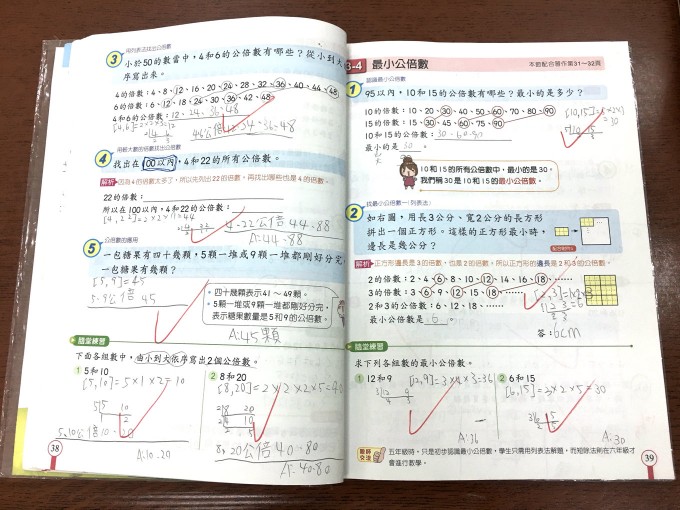 用列表法找出公倍數
3 小於50的數當中，4和6的公倍數有哪些？從小到大
序寫出來。
4的倍數：4、8、12、16、20、24、28、32、36、40、44、48
6的倍數：6、12、18、24、30、36、42、48
4和6的公倍數：12、24、36、48
[4,6]=2×2×3=12
4 找出在100以內，4和22的所有公倍數。
解析 因為4的倍數太多了，所以先列出22的倍數，再找出哪些也是4的倍數。
22的倍數：
所以在100以內，4和22的公倍數：
[4,22]=2×2×11=44
4-22公倍 44-88
A:44-88
公倍數的應用
5 一包糖果有四十幾顆，5顆一堆或9顆一堆都剛好分完，
一包糖果有幾顆？
[5,9]=45
5.9公倍 45
四十幾顆表示41～49顆。
5顆一堆或9顆一堆都剛好分完，
表示糖果數量是5和9的公倍數。
A:45顆
隨堂練習
下面各組數中，由小到大依序寫出2個公倍數。
1 5和10
[5,10]=5×1×2=10
5.10公倍10-20
A:10-20
2 8和20
[8,20]=2×2×2×5=40
8.20公倍40-80
A:40-80
38
3-4 最小公倍數
本節配合習作第31～32頁
認識最小公倍數
1 95以內，10和15的公倍數有哪些？最小的是多少？
10的倍數：10、20、30、40、50、60、70、80、90
15的倍數：15、30、45、60、75、90
10和15的公倍數：30-60-90
最小的是
10和15的所有公倍數中，最小的是30，
我們稱30是10和15的最小公倍數。
找最小公倍數—(列表法)
2 如右圖，用長3公分、寬2公分的長方形
拼出一個正方形。這樣的正方形最小時，
邊長是幾公分？
解析 正方形邊長是3的倍數，也是2的倍數，所以正方形的邊長是2和3的公倍數。
2的倍數：2、4、6、8、10、12、14、16、18、……
3的倍數：3、6、9、12、15、18、……
2和3的公倍數：6、12、18、……
最小公倍數是 6 。
答：6cm
隨堂練習
求下列各組數的最小公倍數。
1 12和9
[12,9]=3×4×3=36
A:36
2 6和15
[6,15]=3×2×5=30
A:30
五年級時，只是初步認識最小公倍數，學生只需用列表法解題，而短除法則在六年級才
會進行教學。
39